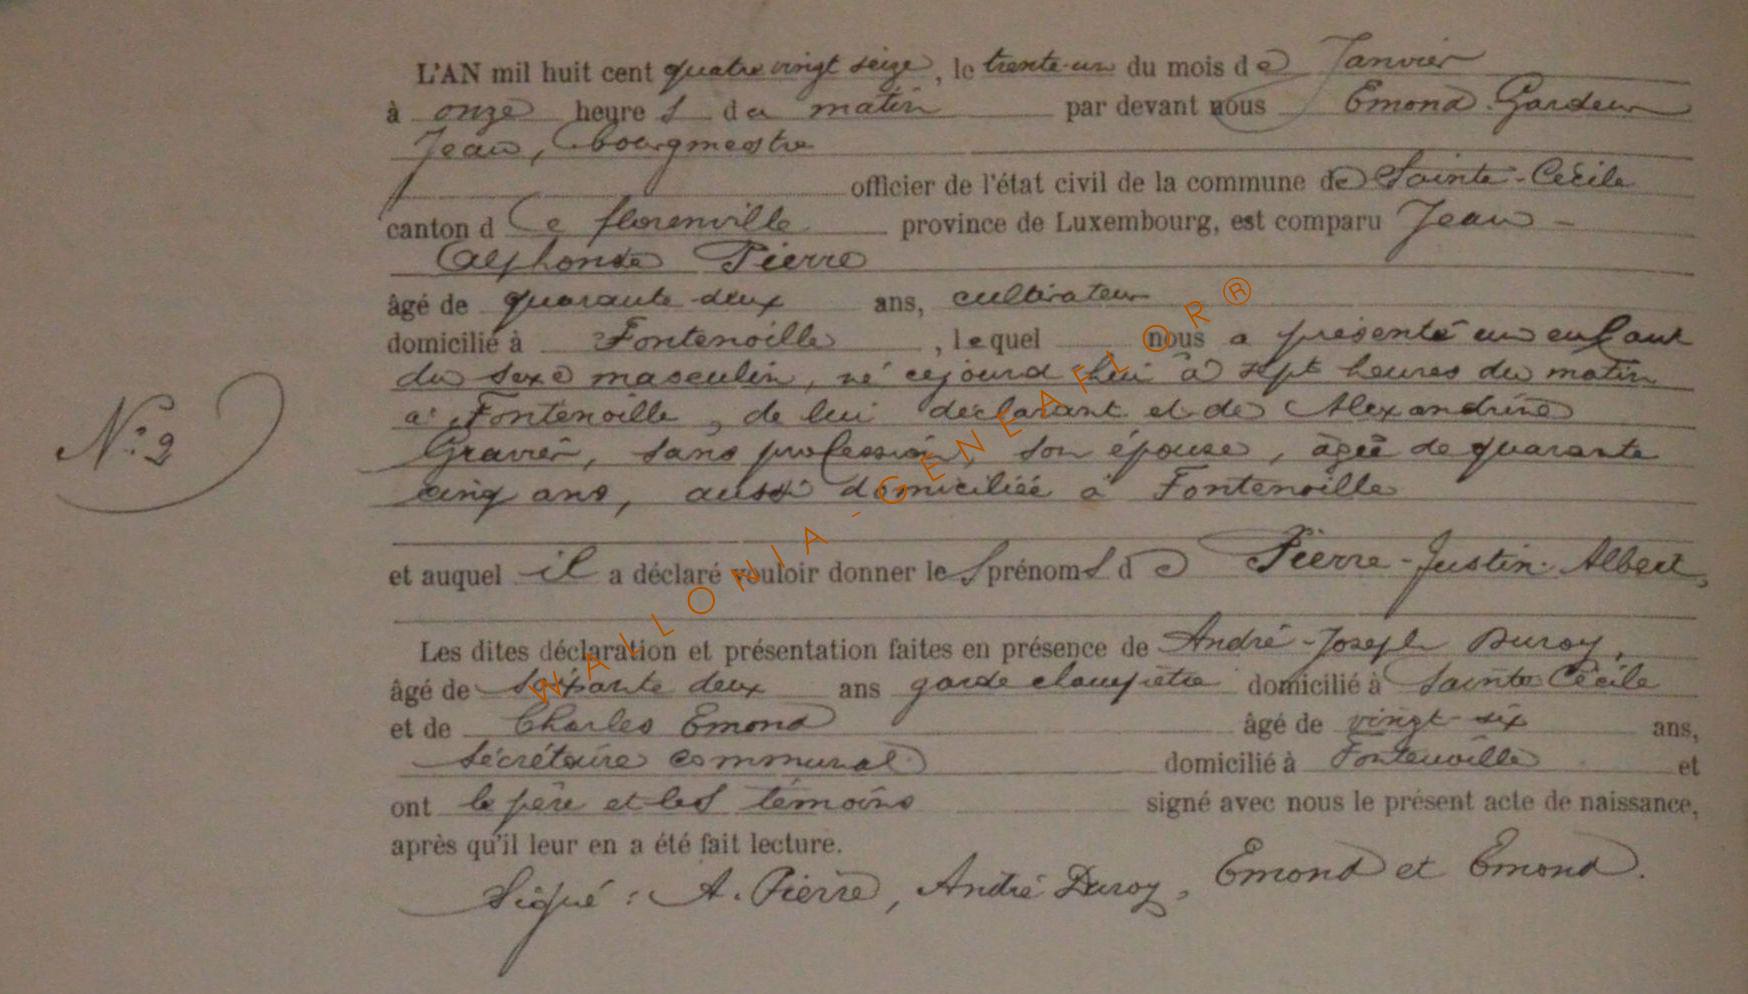 L'AN mil huit cent quatre vingt seize, le trente-un du mois de Janvier
à onze heures du matin par devant nous Emond-Gardeur
Jean, bourgmestre
officier de l'état civil de la commune de Sainte-Cécile
canton de florenville province de Luxembourg, est comparu Jean-
Alphonse Pierre
âgé de quarante-deux ans, cultivateur
domicilié à Fontenoille, lequel nous a présenté un enfant
du sexe masculin, né cejourd'hui à sept heures du matin
à Fontenoille, de lui déclarant et de Alexandrine
N:2
Gravier, sans profession, son épouse, âgée de quarante
cinq ans, aussi domiciliée à Fontenoille
et auquel il a déclaré vouloir donner les prénoms de Pierre-Justin-Albert,
Les dites déclaration et présentation faites en présence de André-Joseph Duroy,
âgé de soixante deux ans garde champêtre domicilié à Sainte Cécile
et de Charles Emond âgé de vingt-six ans,
sécrétaire communal domicilié à Fontenoille et
ont le père et les témoins signé avec nous le présent acte de naissance,
après qu'il leur en a été fait lecture.
Signé: A. Pierre, André Duroy, Emond et Emond.
WALLONIA-GENEAFLOR®